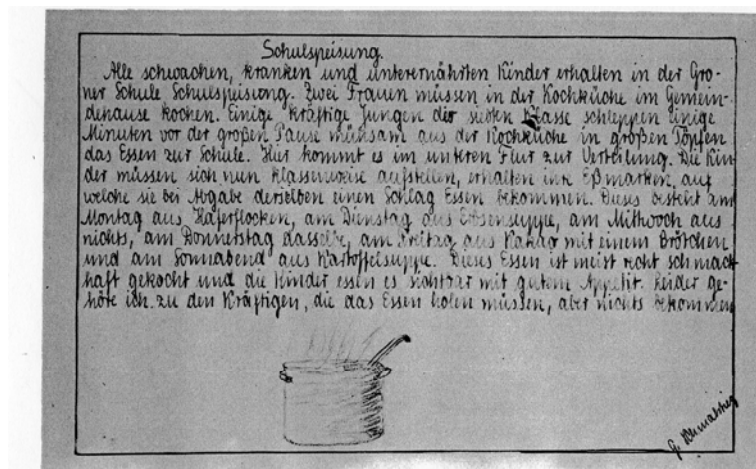 Schulspeisung.
Alle schwachen, kranken und unterernährten Kinder erhalten in der Gro-
ner Schule Schulspeisung. Zwei Frauen müssen in der Kochküche im Gemein-
dehause kochen. Einige kräftige Jungen der siebten Klasse schleppen einige
Minuten vor der großen Pause mühsam aus der Kochküche in großen Töpfen
das Essen zur Schule. Hier kommt es im unteren Flur zur Verteilung. Die Kin-
der müssen sich nun klassenweise aufstellen, erhalten ihre Eßmarken, auf
welche sie bei Abgabe derselben einen Schlag Essen bekommen. Dieses besteht am
Montag aus Haferflocken, am Dienstag aus Erbsensuppe, am Mittwoch aus
nichts, am Donnerstag dasselbe, am Freitag aus Kakao mit einem Brötchen
und am Sonnabend aus Kartoffelsuppe. Dieses Essen ist meist recht schmack
haft gekocht und die Kinder essen es sichtbar mit gutem Appetit. Leider ge-
höre ich zu den Kräftigen, die das Essen holen müssen, aber nichts bekommen
G.